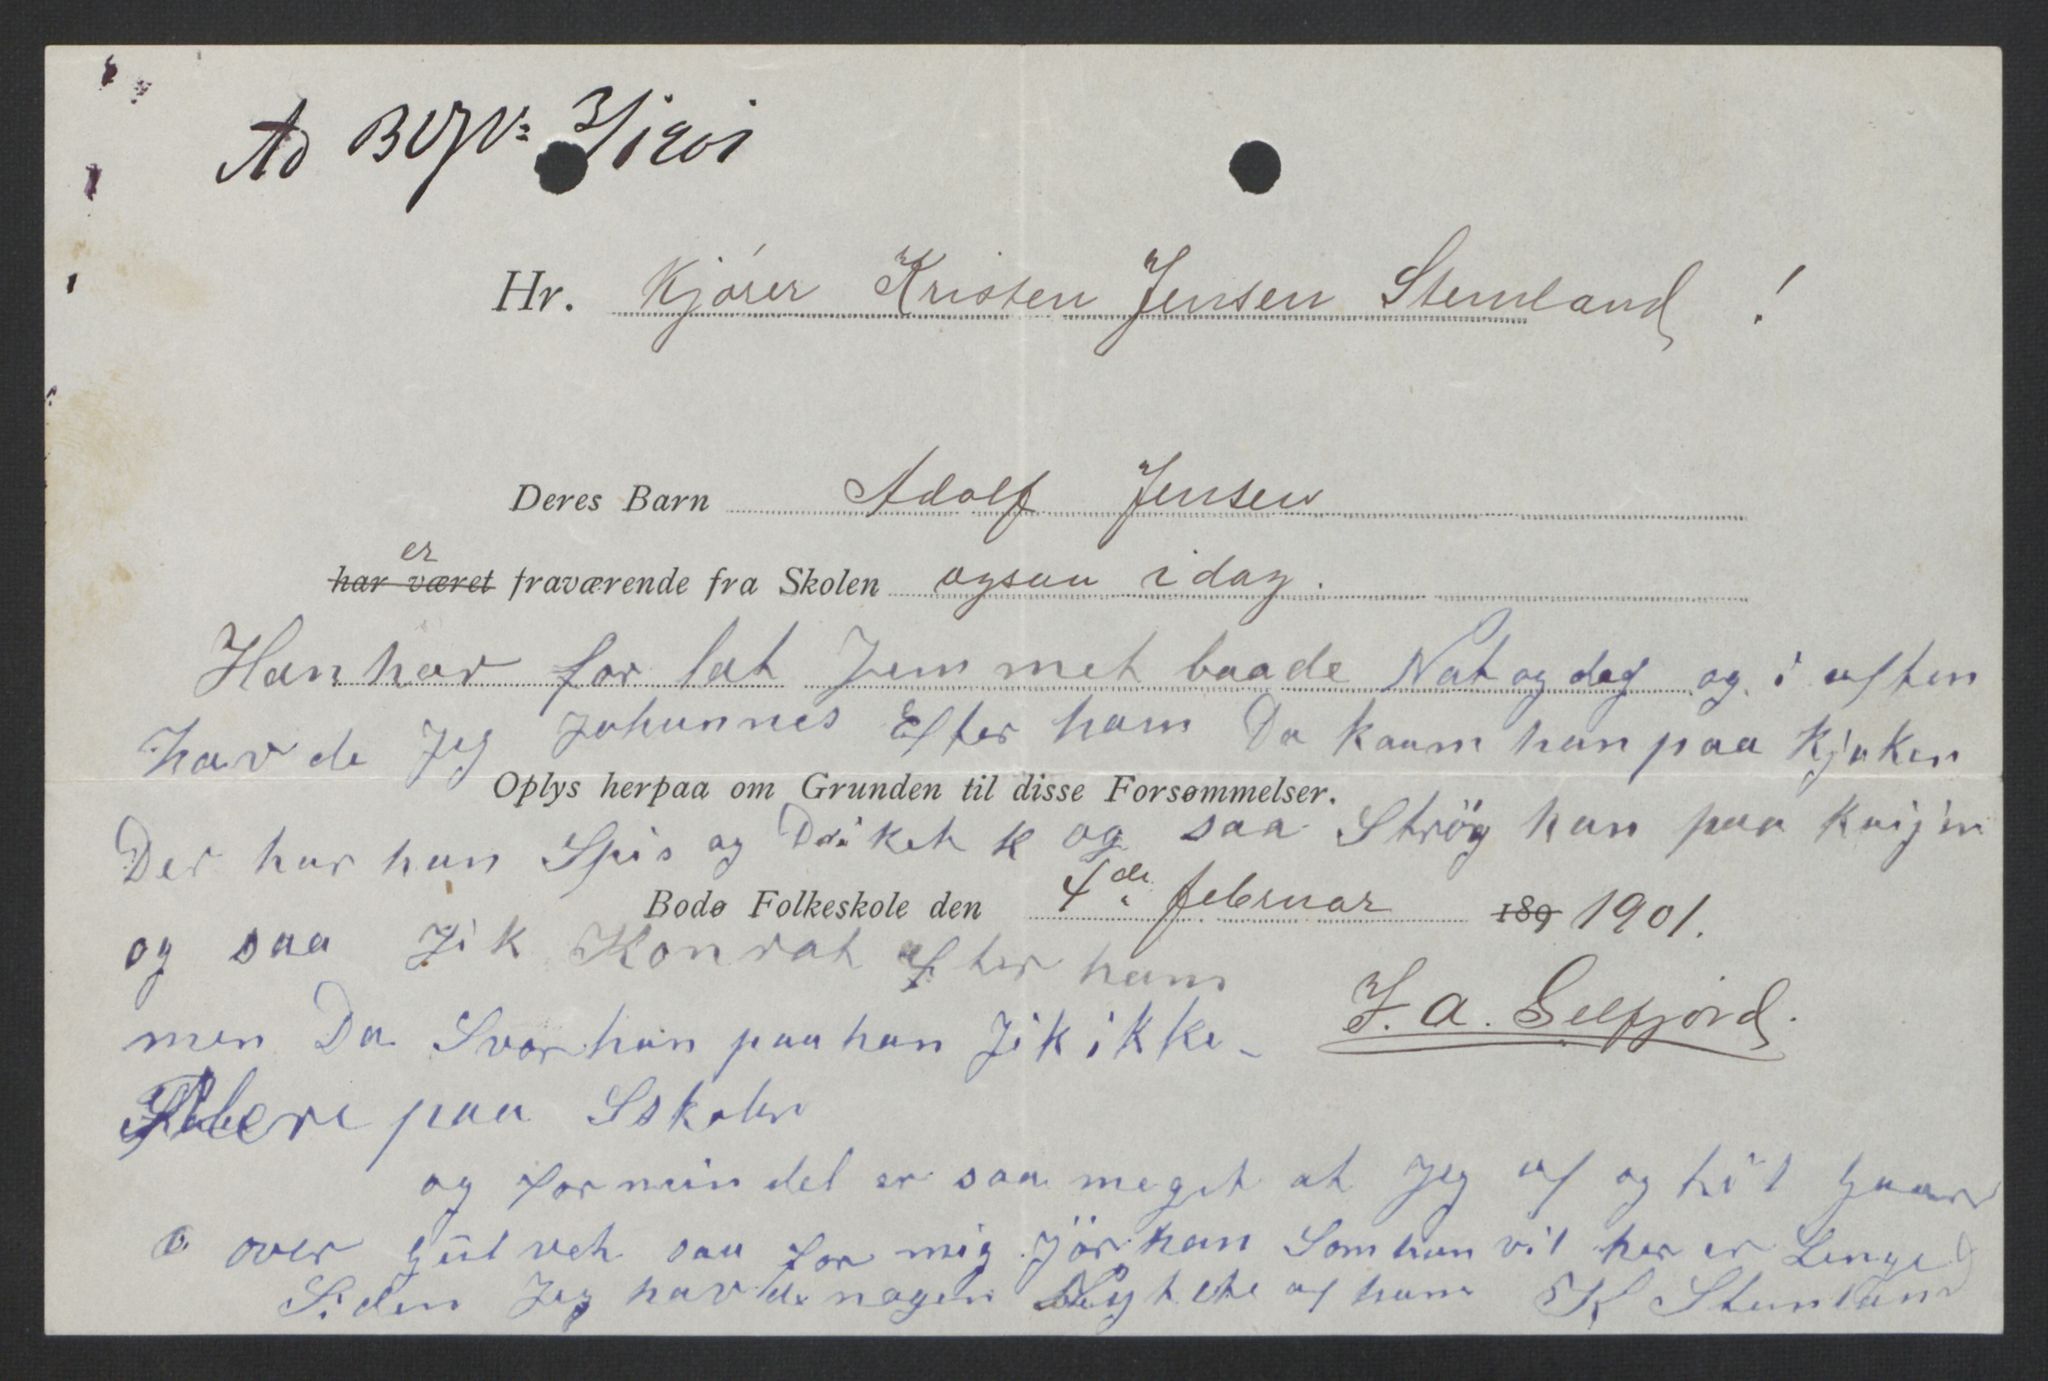 Ad 3/1901
Hr. Kjører Kristen Jensen Stemland!
Deres Barn Adolf Jensen
er
har været fraværende fra Skolen ogsaa idag.
Han har for lat Jem met baade Nat og dag og i aften
hav de Jeg Johannes Efter ham Da kaam han paa Kjøken
Oplys herpaa om Grunden til disse Forsømmelser.
Der har han Spis og Driket og saa Strøg han paa Kaijen
Bodø Folkeskole den 4de februar 189 1901.
og saa Jik Konrat efter ham
J. A. Selfjord.
men Da Svor han paa han Jik ikke
paa Sskolen
og for min del er saa meget at Jeg af og til Gaar
over Gulveh saa for mig Jør han Som han vil her er Lenge
Siden Jeg havde nogen Nytete af ham K Stemland